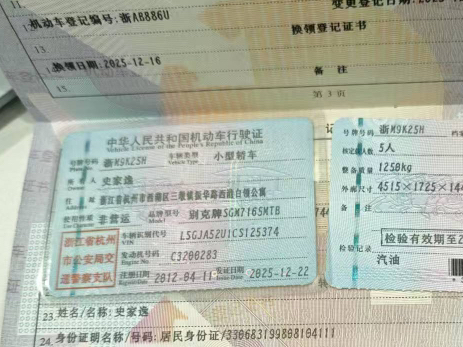 机动车登记编号: 浙AB886U
变更登记日期: 2025-12
换领登记证书
换领日期: 2025-12-16
备 注
第 3 页
中华人民共和国机动车行驶证
Vehicle License of the People's Republic of China
号牌号码 浙M9K25H 车辆类型 小型轿车
史家逸
住 址 浙江省杭州市西湖区三墩镇振华路西路白领公寓
使用性质 非营运 品牌型号 别克牌SGM7165MTB
浙江省杭州
市公安局交
通警察支队
车辆识别代号 LSGJA52U1CS125374
发动机号码 C3200283
注册日期 2012-04-11 发证日期 2025-12-22
号牌号码 浙M9K25H
核定载人数 5人
整备质量 1250kg
外廓尺寸 4515×1725×144
备 注
检验有效期至2
检验记录
汽油
23.姓名/名称: 史家逸
24.身份证明名称/号码: 居民身份证/